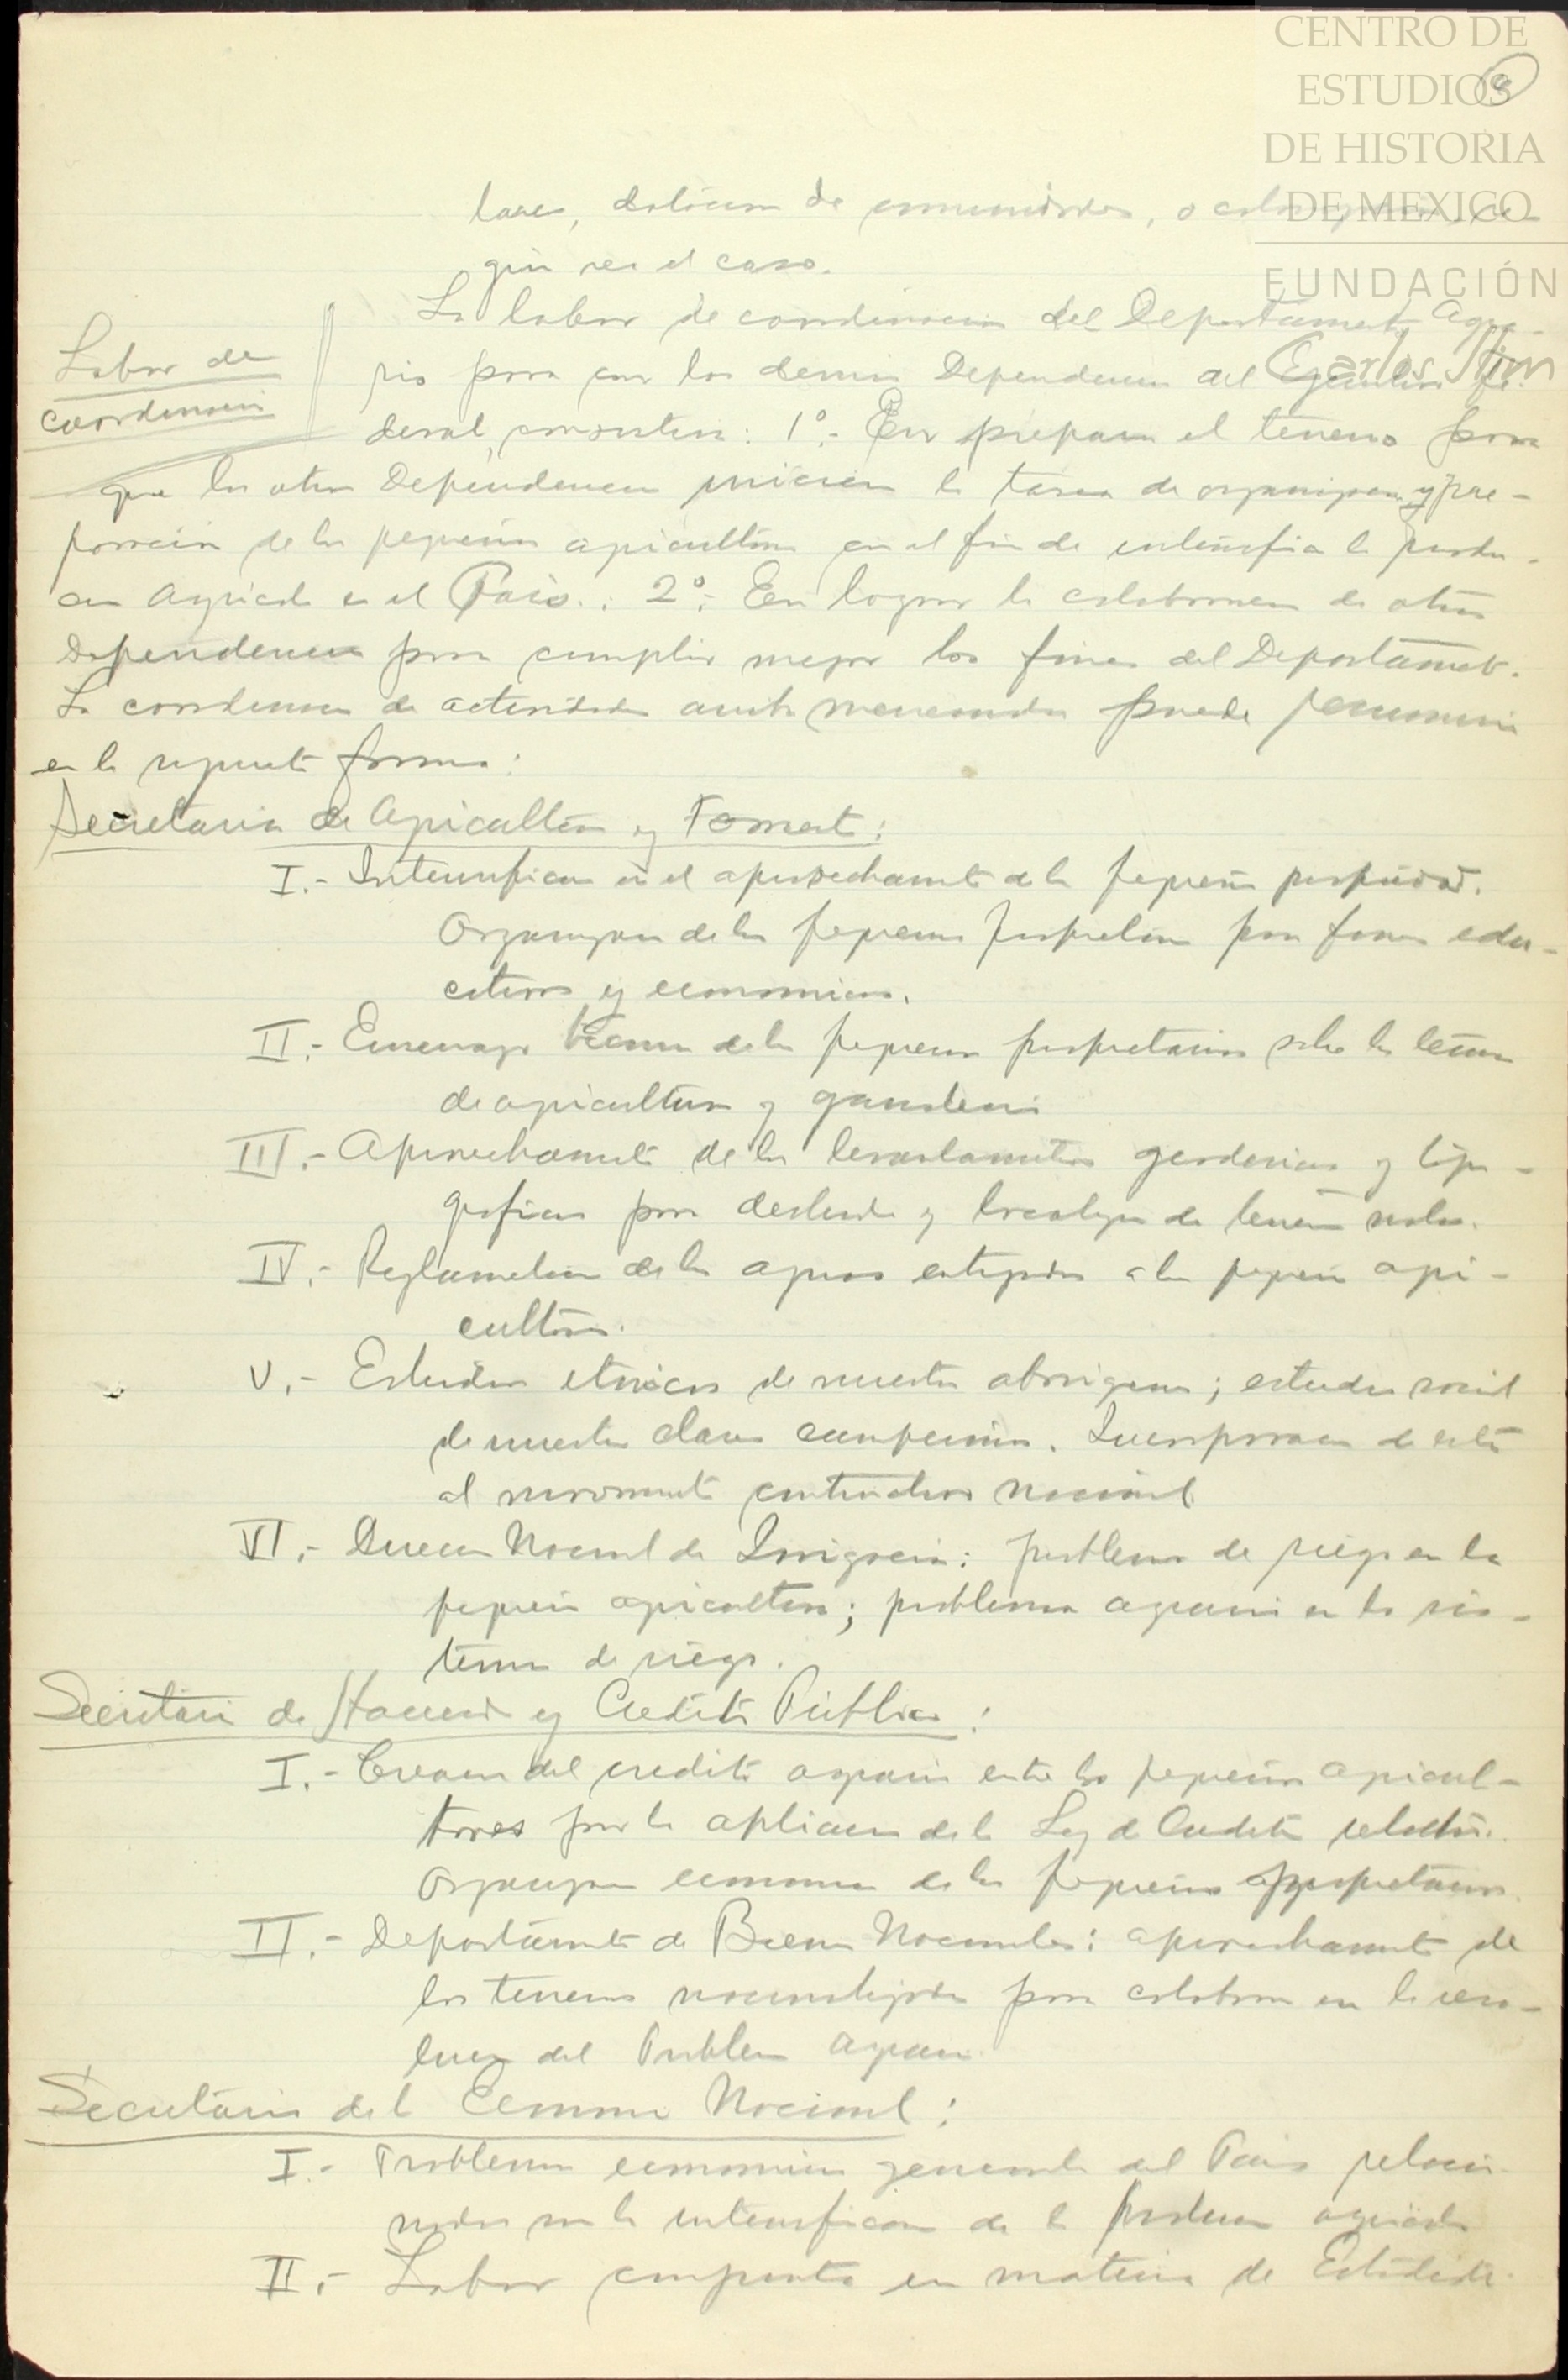 CENTRO DE
ESTUDIOS
DE HISTORIA
DE MEXICO
FUNDACIÓN
Carlos Slim
de comunidades, o
gún sea el caso.
Labor de
coordinación
La labor de coordinación del Departamento Agra-
rio para con las demás Dependencias del Ejecutivo Fe-
deral, consistirá: 1º.- En preparar el terreno para
que las otras Dependencias inicien la tarea de organización y pre-
paración de los pequeños agricultores con el fin de intensificar la produc-
ción Agrícola en el País.; 2º.- En lograr la colaboración de otras
Dependencias para cumplir mejor los fines del Departamento.
La coordinación de actividades antes mencionadas puede resumirse
en la siguiente forma:
Secretaría de Agricultura y Fomento:
I.- Intensificación en el aprovechamiento de la pequeña propiedad.
Organización de los pequeños propietarios para fines edu-
cativos y económicos.
II.- Enseñanza técnica de los pequeños propietarios sobre la
de agricultura y ganadería
III.- Aprovechamiento de los levantamientos geodésicos y topo-
gráficos para deslinde y localización de terrenos
IV.- Reglamentación de las aguas entregadas a los pequeños agri-
cultores.
V.- Estudios étnicos de nuestros aborígenes; estudio social
de nuestras clases campesinas. Incorporación de estas
al movimiento constructivo nacional
VI.- Dirección Nacional de Irrigación: problemas de riego en la
pequeña agricultura; problema agrario en los sis-
temas de riego.
Secretaría de Hacienda y Crédito Público:
I.- Creación del crédito agrario entre los pequeños agricul-
tores por la aplicación de la Ley de Crédito relativa.
Organización económica de los pequeños propietarios.
II.- Departamento de Bienes Nacionales: aprovechamiento de
los terrenos nacionalizados para colaborar en la reso-
lución del Problema agrario
Secretaría de la Economía Nacional:
I.- Problemas económicos generales del País relacio-
nados con la intensificación de la producción agrícola
II.- Labor conjunta en materia de Estadística.